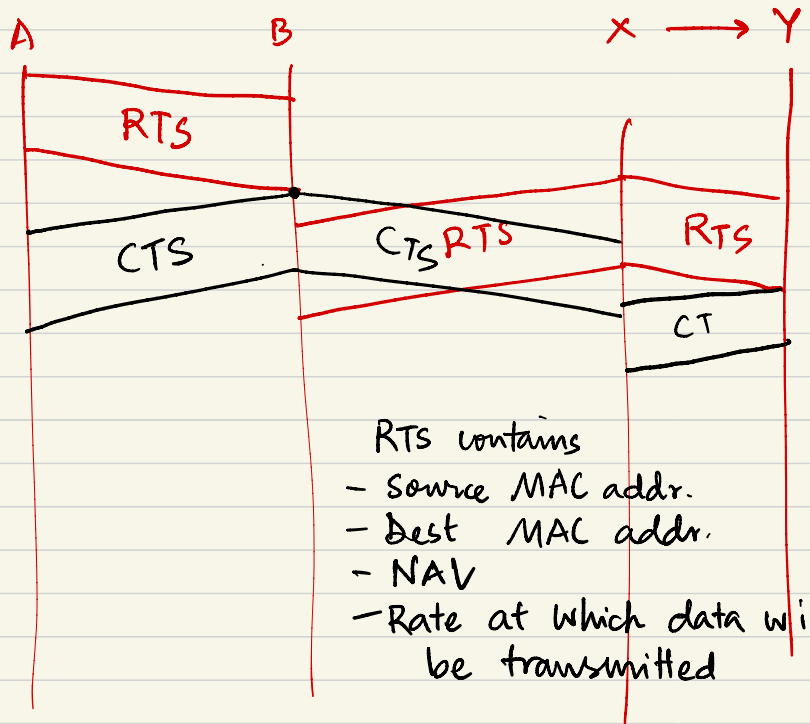 A B X → Y
RTS
CTS CTS RTS RTS
CT
RTS contains
- Source MAC addr.
- Dest MAC addr.
- NAV
- Rate at which data wi
be transmitted